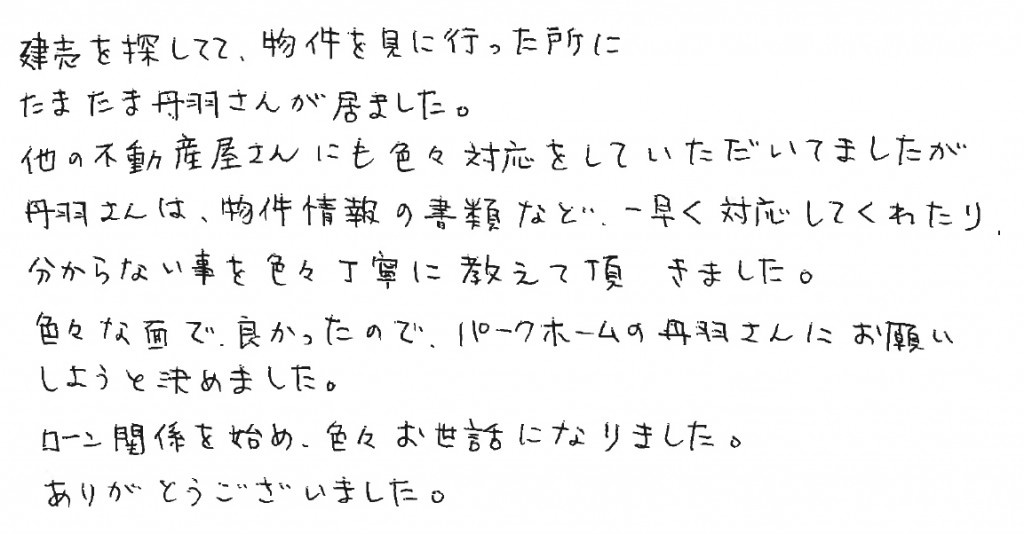 建売を探してて、物件を見に行った所に
たまたま丹羽さんが居ました。
他の不動産屋さんにも色々対応をしていただいてましたが
丹羽さんは、物件情報の書類など、一早く対応してくれたり、
分からない事を色々丁寧に教えて頂 きました。
色々な面で、良かったので、パークホームの丹羽さんにお願い
しようと決めました。
ローン関係を始め、色々お世話になりました。
ありがとうございました。